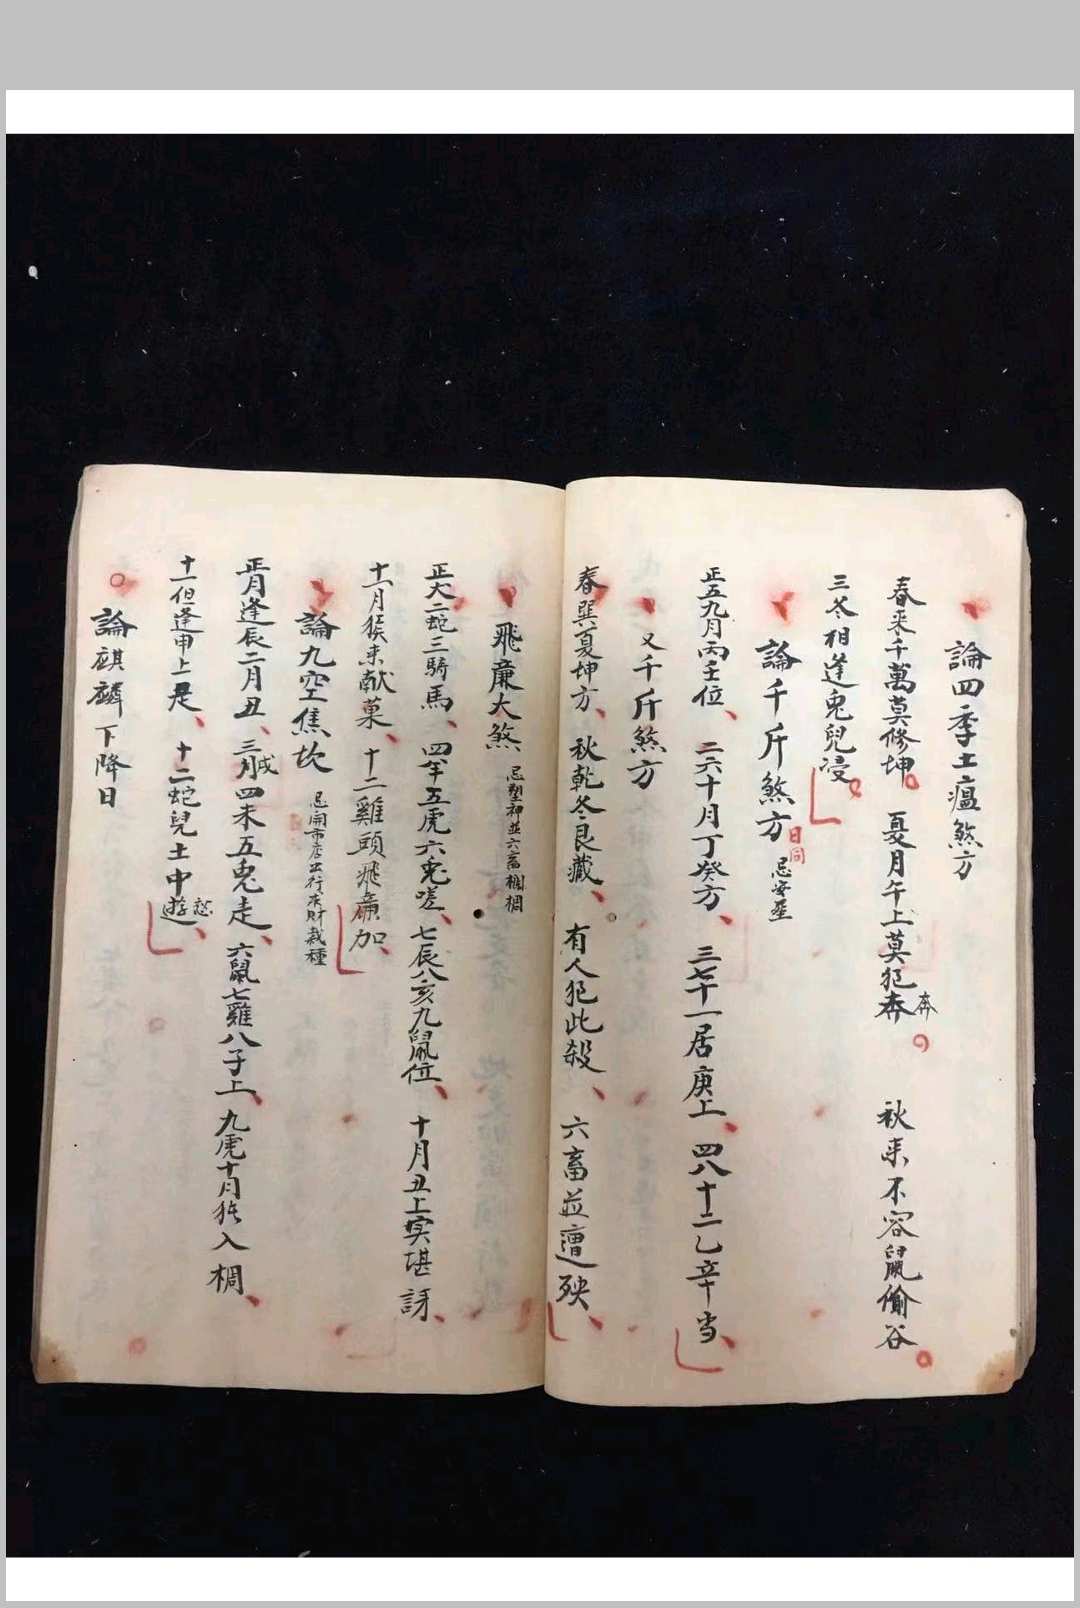 論四季土瘟煞方
春来千萬莫修坤 夏月午上莫犯奔 奔 秋来不容鼠偷谷
三冬相逢兎兒浸
論千斤煞方 日同 忌安葬
正五九月丙壬位、二六十月丁癸方、三七十一居庚上、四八十二乙辛当、
又千斤煞方
春巽夏坤方、秋乾冬艮藏、有人犯此殺、六畜並遭殃、
飛廉大煞 忌塑神並六畜欄棢
正犬二蛇三騎馬、四羊五虎六兎嗟、七辰八亥九鼠位、十月丑上实堪訝、
十一月猴来献菓、十二雞頭飛廉加、
論九空焦坎 忌開市店出行求財栽種
正月逢辰二月丑、三月戌四未五兎走、六鼠七雞八子上、九虎十月猪入棢、
十一但逢申上是、十二蛇兒土中遊、愁
論麒麟下降日